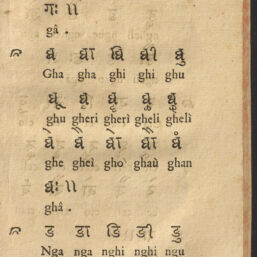 गः ॥
gâ .
घ घा घि घी घु
Gha gha ghi ghi ghu
घू घृ घॄ घॢ घॣ
ghu gheri gherì gheli ghelì
घे घै घो घौ घं
ghe gheì gho ghaù ghan
घः ॥
ghâ .
ङ ङा ङि ङी ङु
Nga nga nghi nghi ngu